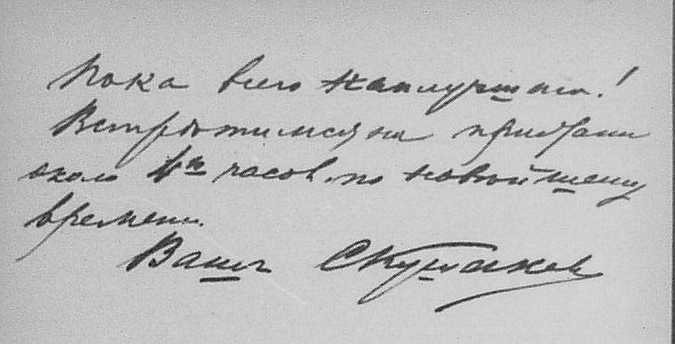 Пока всего наилучшаго!
Встрѣтимся на пристани
около 4х часов по новейшему
времени.
Вашъ